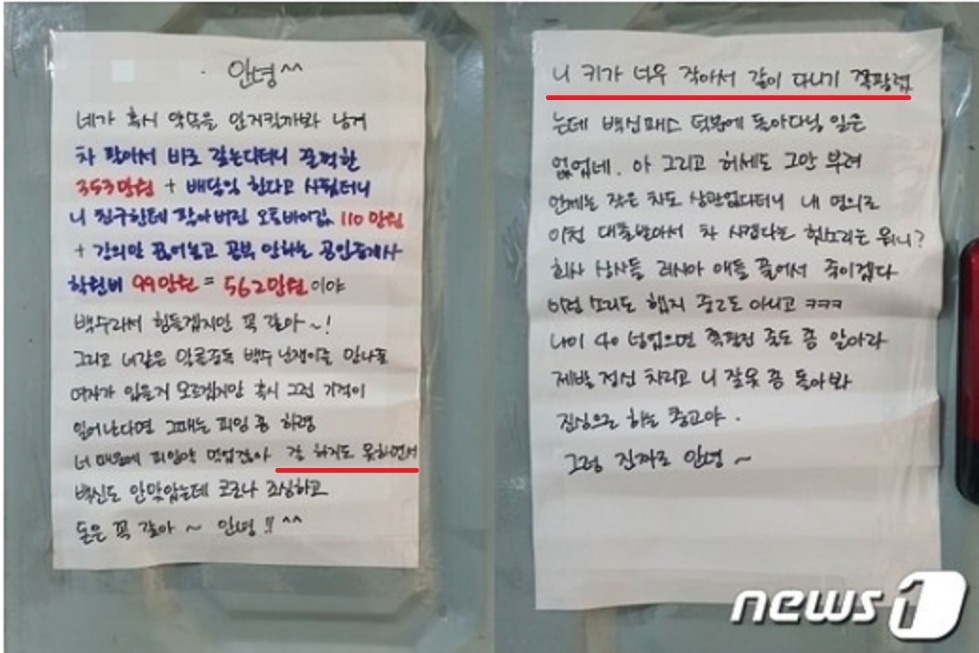 안녕^^
네가 혹시 약속을 안지킬까봐 남겨
차 팔아서 바로 갚는다더니 꿀꺽한
353만원 + 배달일 한다고 사줬더니
니 친구한테 팔아버린 오토바이값 110만원
+ 강의만 끊어놓고 공부 안하는 공인중개사
학원비 99만원 = 562만원이야
백수라서 힘들겠지만 꼭 갚아~!
그리고 너같은 알콜중독 백수 난쟁이를 만나줄
여자가 있을지 모르겠지만 혹시 그런 기적이
일어난다면 그때는 피임 좀 하렴
너 때문에 피임약 먹었잖아 잘 하지도 못하면서
백신도 안맞았는데 코로나 조심하고
돈은 꼭 갚아 ~ 안녕!! ^^
니 키가 너무 작아서 같이 다니기 쪽팔렸
는데 백신패스 덕분에 돌아다닐 일은
없었네. 아 그리고 허세도 그만 부려
언제는 작은 차도 상관없다더니 내 명의로
이천 대출받아서 차 사겠다는 헛소리는 뭐니?
회사 상사들 러시아 애들 풀어서 죽이겠다
이런 소리도 했지 중2도 아니고 ㅋㅋㅋ
나이 40 넘었으면 쪽팔린 줄도 좀 알아라
제발 정신 차리고 니 잘못 좀 돌아봐
진심으로 하는 충고야.
그럼 진짜로 안녕~
news1